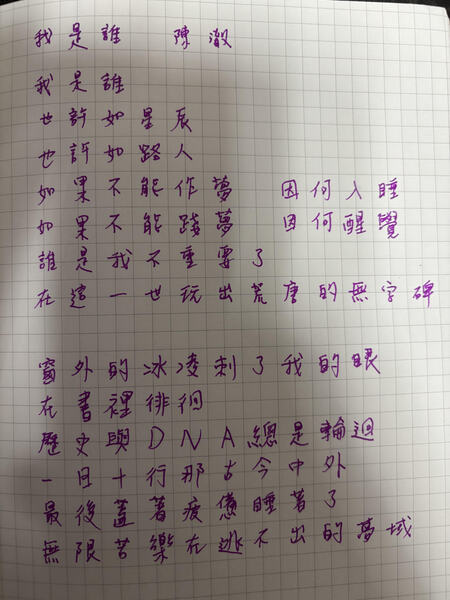 我是誰 陳澈
我是誰
也許如星辰
也許如路人
如果不能作夢 因何入睡
如果不能踐夢 因何醒覺
誰是我不重要了
在這一世玩出荒唐的無字碑
窗外的冰凌刺了我的眼
在書裡徘徊
歷史與DNA總是輪迴
一目十行那古今中外
最後蓋著疲憊睡著了
無限苦樂在逃不出的夢域